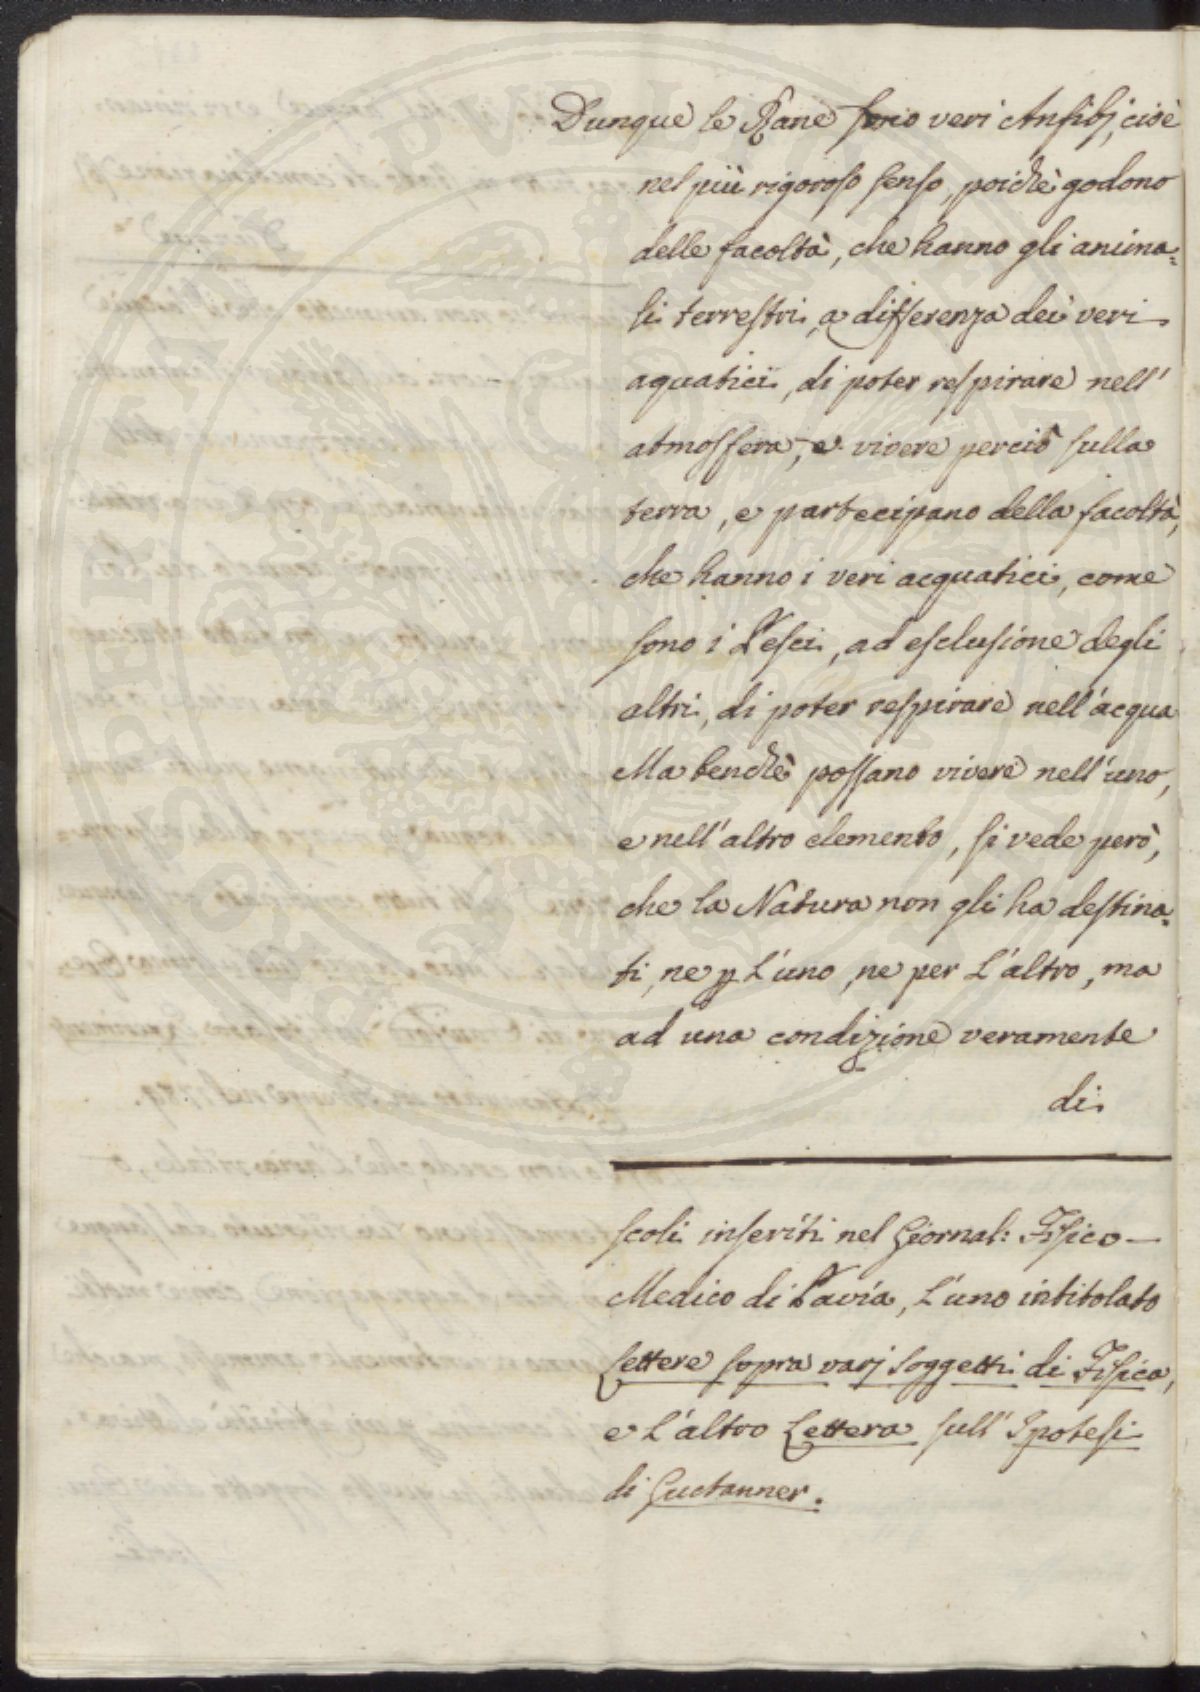 Dunque le Rane sono veri Anfibj, cioè
nel più rigoroso senso, poichè godono
delle facoltà, che hanno gli anima=
li terrestri, a differenza dei veri
aquatici, di poter respirare nell'
atmosfera, e vivere perciò sulla
terra, e partecipano della facoltà,
che hanno i veri acquatici, come
sono i Pesci, ad esclusione degli
altri, di poter respirare nell'acqua
Ma benchè possano vivere nell'uno,
e nell'altro elemento, si vede però,
che la Natura non gli ha destina=
ti, ne p L'uno, ne per L'altro, ma
ad una condizione veramente
di
scoli inseriti nel Giornal: Fisico-
Medico di Pavia, L'uno intitolato
Lettere sopra varj soggetti di Fisica,
e L'altro Lettera sull'Ipotesi
di Guctanner.